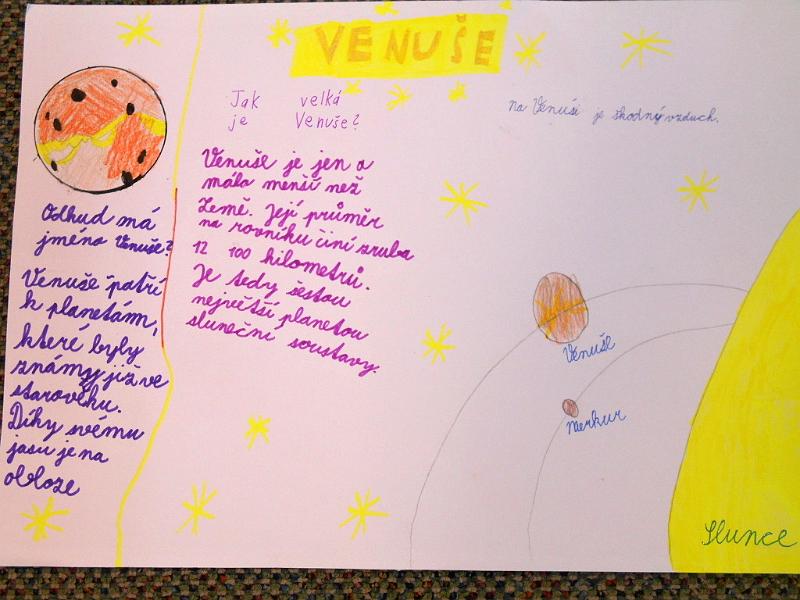 VENUŠE
Odkud má
jméno Venuše?
Venuše patří
k planetám,
které byly
známy již ve
starověku.
Díky svému
jasu je na
obloze
Jak velká
je Venuše?
Venuše je jen o
málo menší než
Země. Její průměr
na rovníku činí zruba
12 100 kilometrů.
Je tedy šestou
největší planetou
sluneční soustavy.
na Venuši je škodný vzduch.
Venuše
Merkur
Slunce